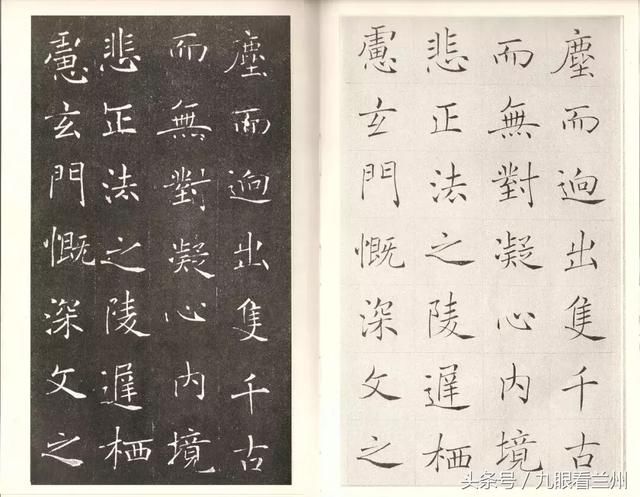 塵而逈出隻千古
而無對凝心內境
悲正法之陵遲栖
慮玄門慨深文之
塵而逈出隻千古
而無對凝心內境
悲正法之陵遲栖
慮玄門慨深文之
头条号／九眼看兰州